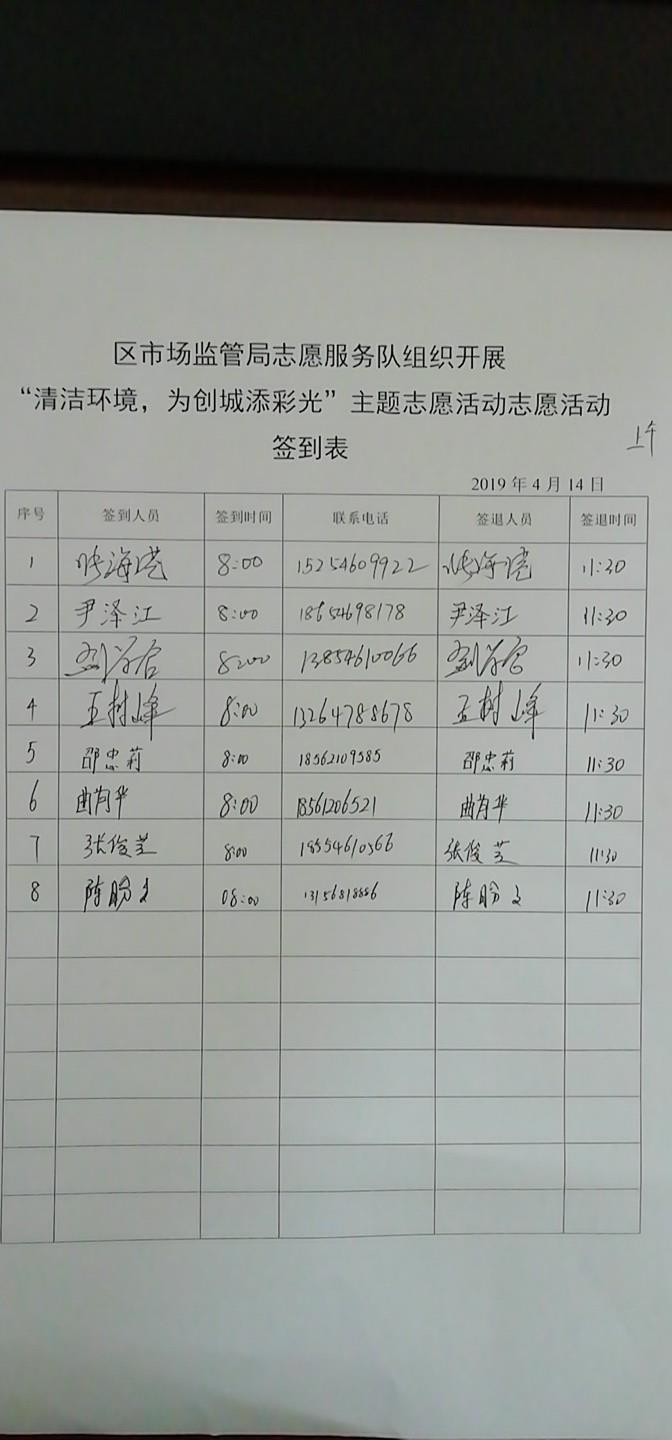 区市场监管局志愿服务队组织开展
“清洁环境，为创城添彩光”主题志愿活动志愿活动
签到表
上午
2019年4月14日
序号 签到人员 签到时间 联系电话 签退人员 签退时间
1 张海滨 8:00 15254609922 张海滨 11:30
2 尹泽江 8:00 18654698178 尹泽江 11:30
3 8:00 13854610066 11:30
4 王树峰 8:00 13264788678 王树峰 11:30
5 邵忠莉 8:00 18562109585 邵忠莉 11:30
6 曲肖华 8:00 18561206521 曲肖华 11:30
7 张俊芝 8:00 18554610566 张俊芝 11:30
8 陈盼文 08:00 13156818886 陈盼文 11:30